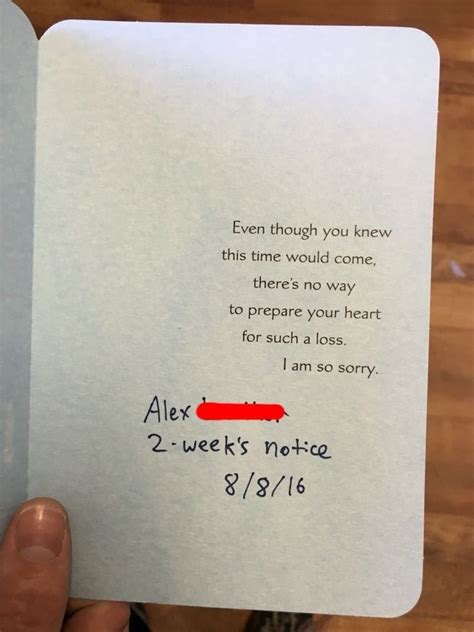 Even though you knew
this time would come,
there's no way
to prepare your heart
for such a loss.
I am so sorry.
Alex
2-week's notice
8/8/16